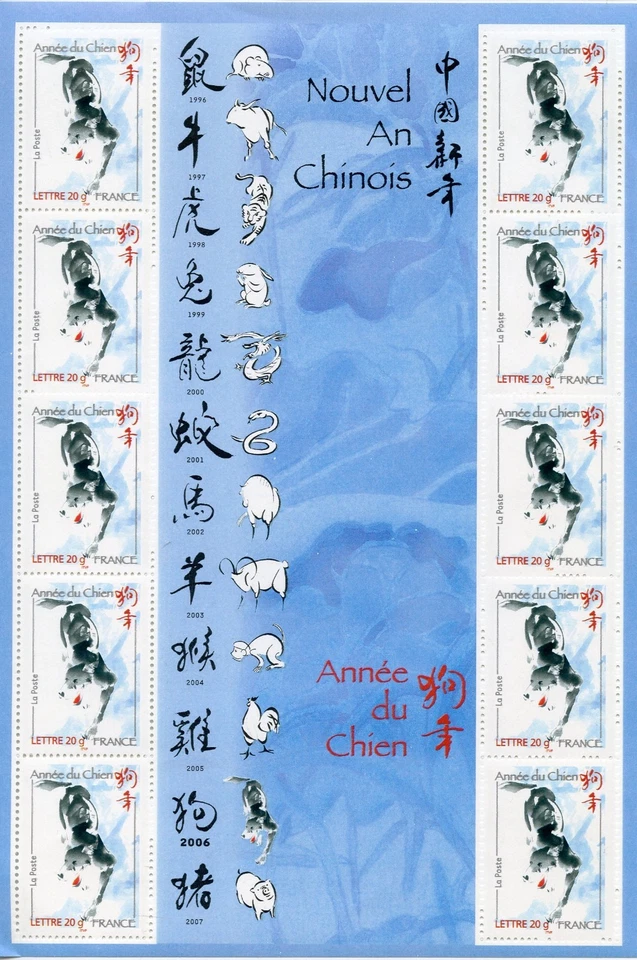 Année du Chien 狗年
La Poste
LETTRE 20 g FRANCE
Année du Chien 狗年
La Poste
LETTRE 20 g FRANCE
Année du Chien 狗年
La Poste
LETTRE 20 g FRANCE
Année du Chien 狗年
La Poste
LETTRE 20 g FRANCE
Année du Chien 狗年
La Poste
LETTRE 20 g FRANCE
鼠
1996
牛
1997
虎
1998
兔
1999
龍
2000
2001
馬
2002
羊
2003
猴
2004
雞
2005
狗
2006
猪
2007
Nouvel
An
Chinois
中國新年
Année
du
Chien
狗年
Année du Chien 狗年
La Poste
LETTRE 20 g FRANCE
Année du Chien 狗年
La Poste
LETTRE 20 g FRANCE
Année du Chien 狗年
La Poste
LETTRE 20 g FRANCE
Année du Chien 狗年
La Poste
LETTRE 20 g FRANCE
Année du Chien 狗年
La Poste
LETTRE 20 g FRANCE